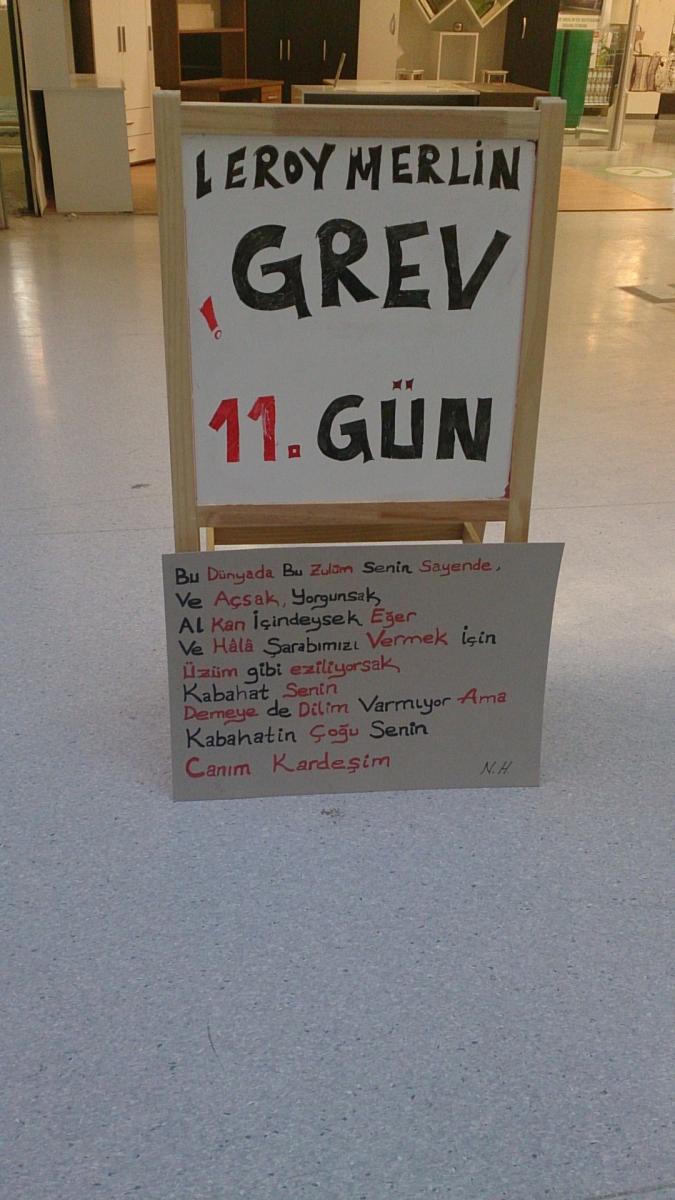 LEROY MERLİN
GREV
!
11. GÜN
Bu Dünyada Bu Zulüm Senin Sayende,
Ve Açsak, Yorgunsak,
Al Kan İçindeysek Eğer
Ve Hâlâ Şarabımızı Vermek için
Üzüm gibi eziliyorsak,
Kabahat Senin
Demeye de Dilim Varmıyor Ama
Kabahatin Çoğu Senin
Canım Kardeşim
N.H.